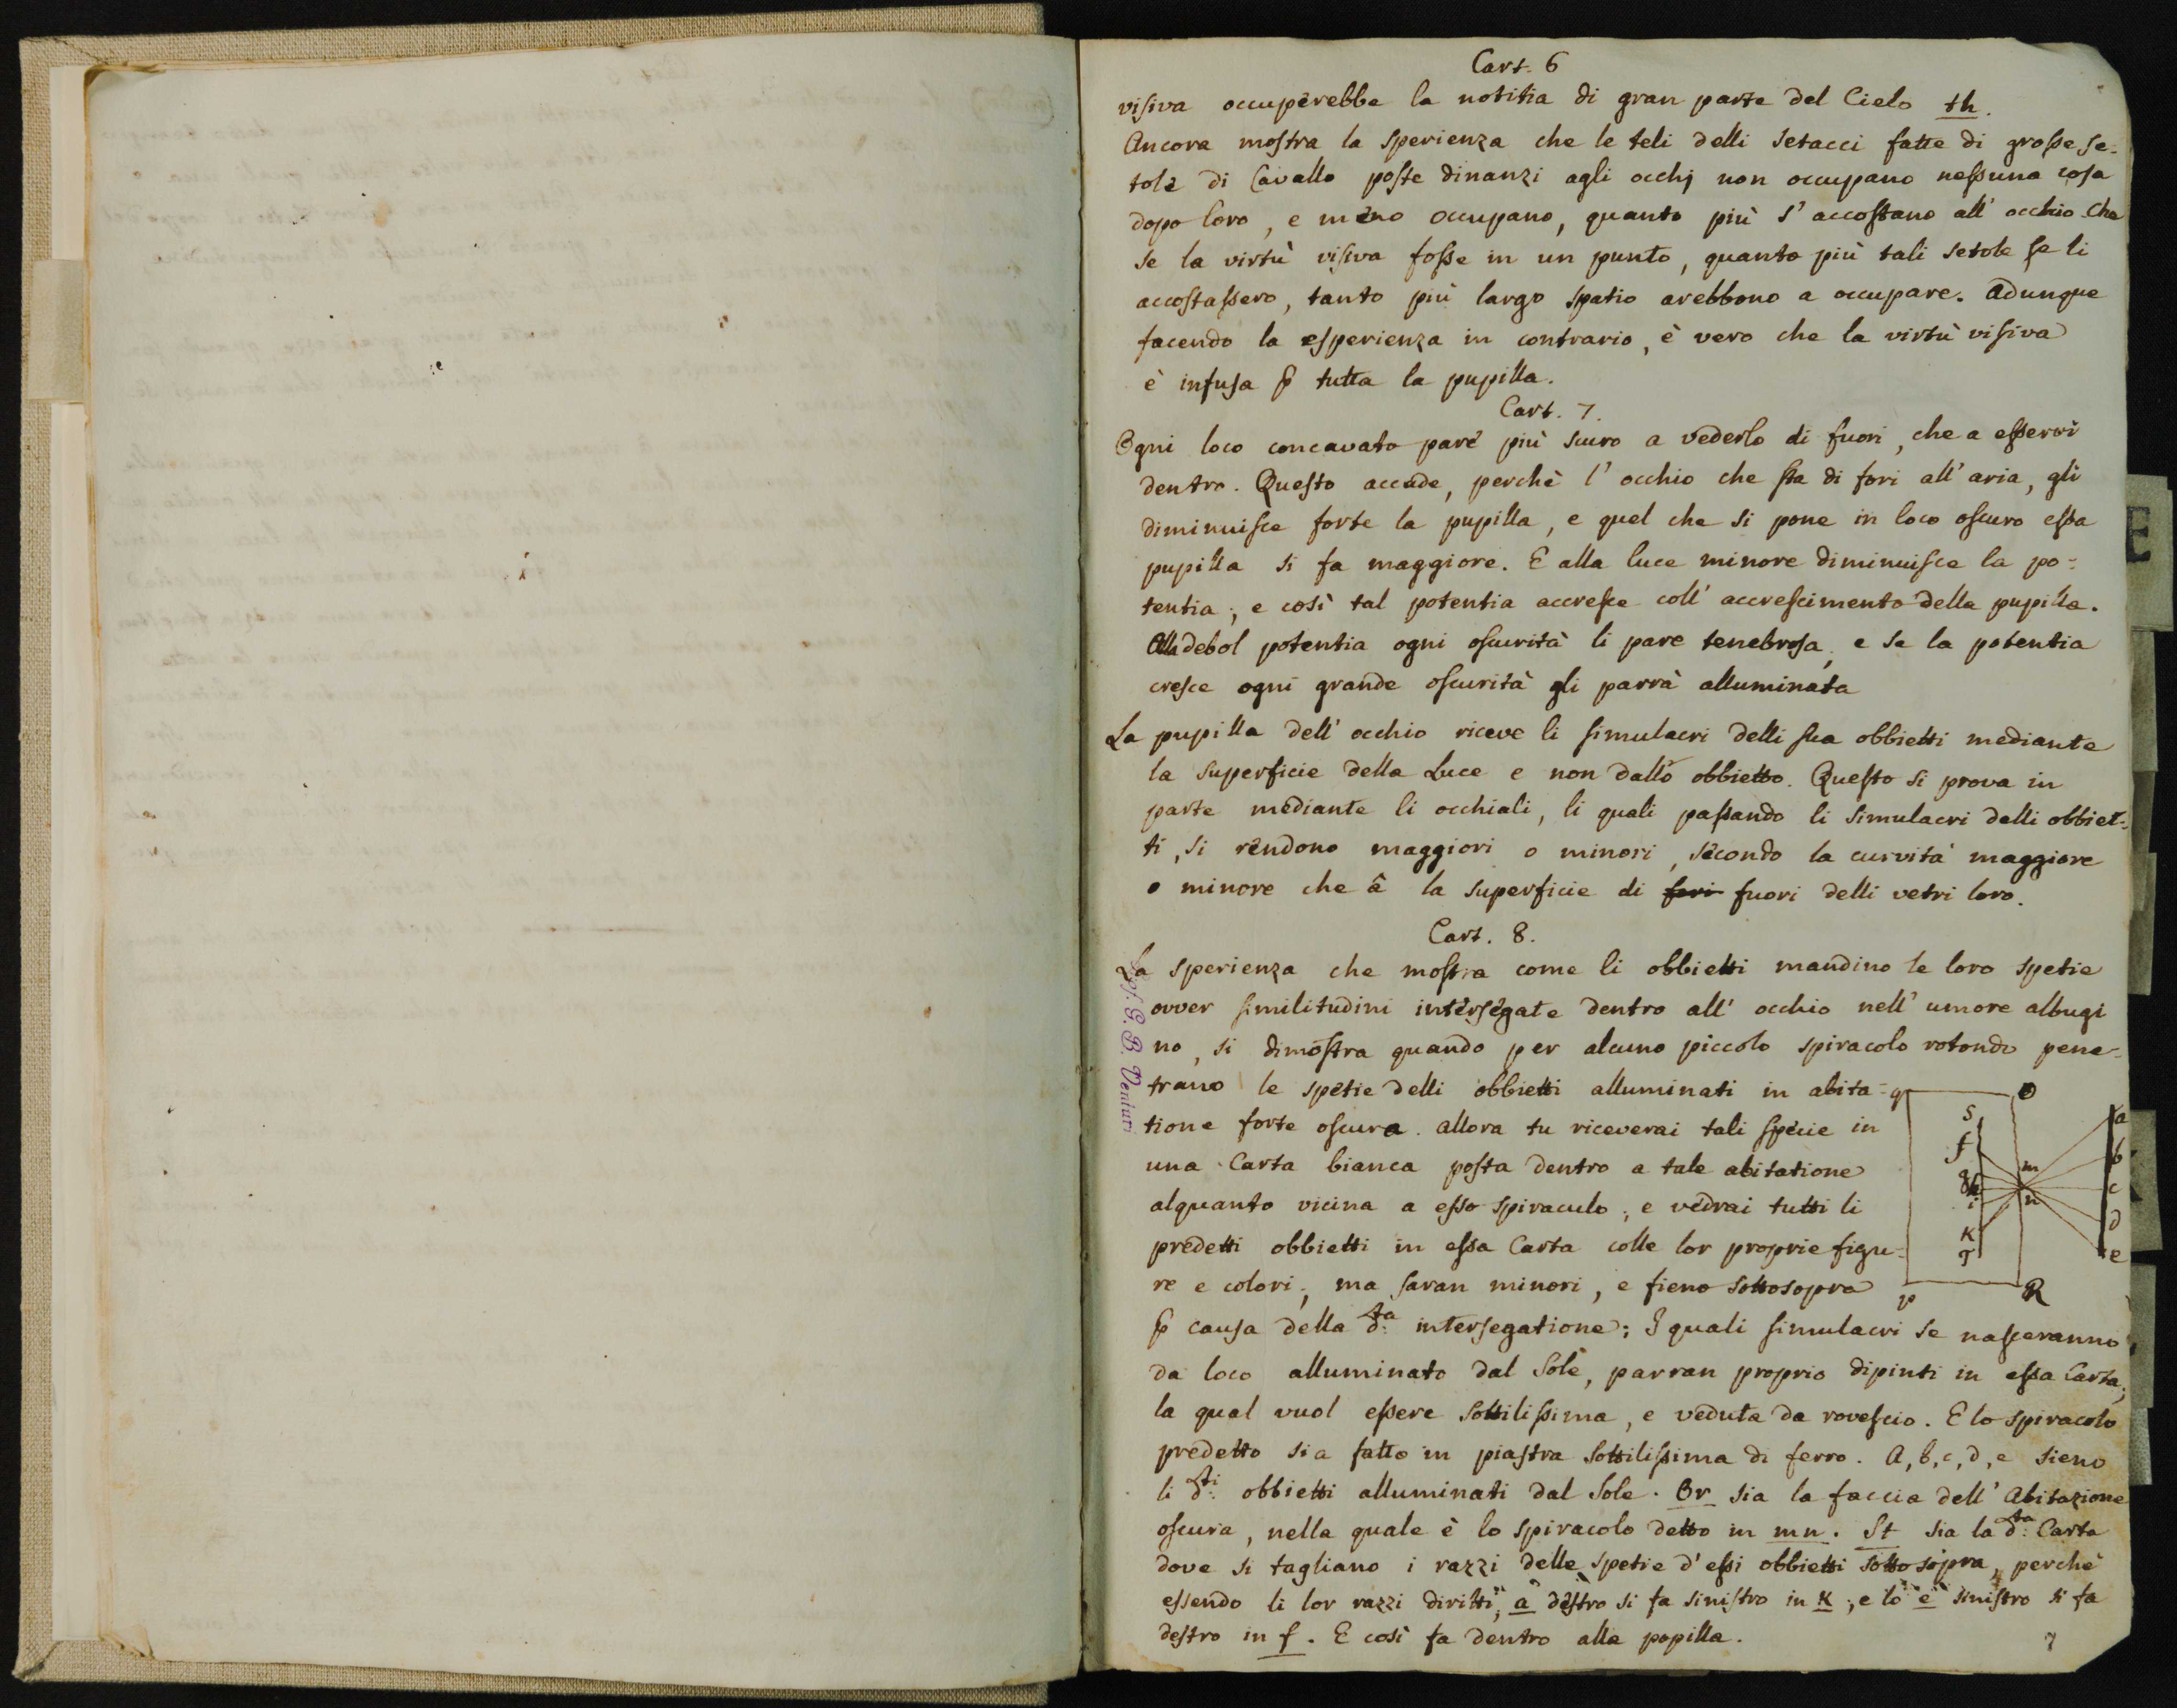 Cart. 6
visiva occuperebbe la notitia di gran parte del Cielo th.
Ancora mostra la sperienza che le teli delli setacci fatte di grosse se-
tole di Cavallo poste dinanzi agli occhj non occupano nessuna cosa
dopo loro, e meno occupano, quanto più s'accostano all'occhio. Che
se la virtù visiva fosse in un punto, quanto più tali setole se li
accostassero, tanto più largo spatio arebbono a occupare. Adunque
facendo la esperienza in contrario, è vero che la virtù visiva
è infusa p tutta la pupilla.
Cart. 7.
Ogni loco concavato pare più scuro a vederlo di fuori, che a esservi
dentro. Questo accade, perchè l'occhio che sta di fori all'aria, gli
diminuisce forte la pupilla, e quel che si pone in loco oscuro essa
pupilla si fa maggiore. E alla luce minore diminuisce la po-
tentia; e così tal potentia accresce coll'accrescimento della pupilla.
Alla debol potentia ogni oscurità li pare tenebrosa, e se la potentia
cresce ogni grande oscurità gli parrà alluminata
La pupilla dell'occhio riceve li simulacri delli sua obbietti mediante
la superficie della Luce e non dallo obbietto. Questo si prova in
parte mediante li occhiali, li quali passando li simulacri delli obbiet-
ti, si rendono maggiori o minori, secondo la curvità maggiore
o minore che â la superficie di fori fuori delli vetri loro.
Cart. 8.
La sperienza che mostra come li obbietti mandino le loro spetie
ovver similitudini intersegate dentro all'occhio nell'umore albugi
no, si dimostra quando per alcuno piccolo spiracolo rotondo pene-
trano le spetie delli obbietti alluminati in abita-
tione forte oscura. allora tu riceverai tali specie in
una Carta bianca posta dentro a tale abitatione
alquanto vicina a esso spiraculo; e vedrai tutti li
predetti obbietti in essa Carta colle lor proprie figu-
re e colori; ma saran minori, e fieno sottosopra
p causa della d.ta intersegatione; I quali simulacri se nasceranno
da loco alluminato dal Sole, parran proprio dipinti in essa Carta;
la qual vuol essere sottilissima, e veduta da rovescio. E lo spiracolo
predetto sia fatto in piastra sottilissima di ferro. A, b, c, d, e sieno
li d.ti obbietti alluminati dal Sole. Or sia la faccia dell'Abitazione
oscura, nella quale è lo spiracolo detto in mn. St sia la d.ta Carta
dove si tagliano i razzi delle spetie d'essi obbietti sotto sopra, perchè
essendo li lor razzi diritti, a destro si fa sinistro in K; e lo e sinistro si fa
destro in f. E così fa dentro alla popilla.
q O
S a
f b
m
g h c
i n
d
K
T e
p R
Prof. G. B. Venturi
7